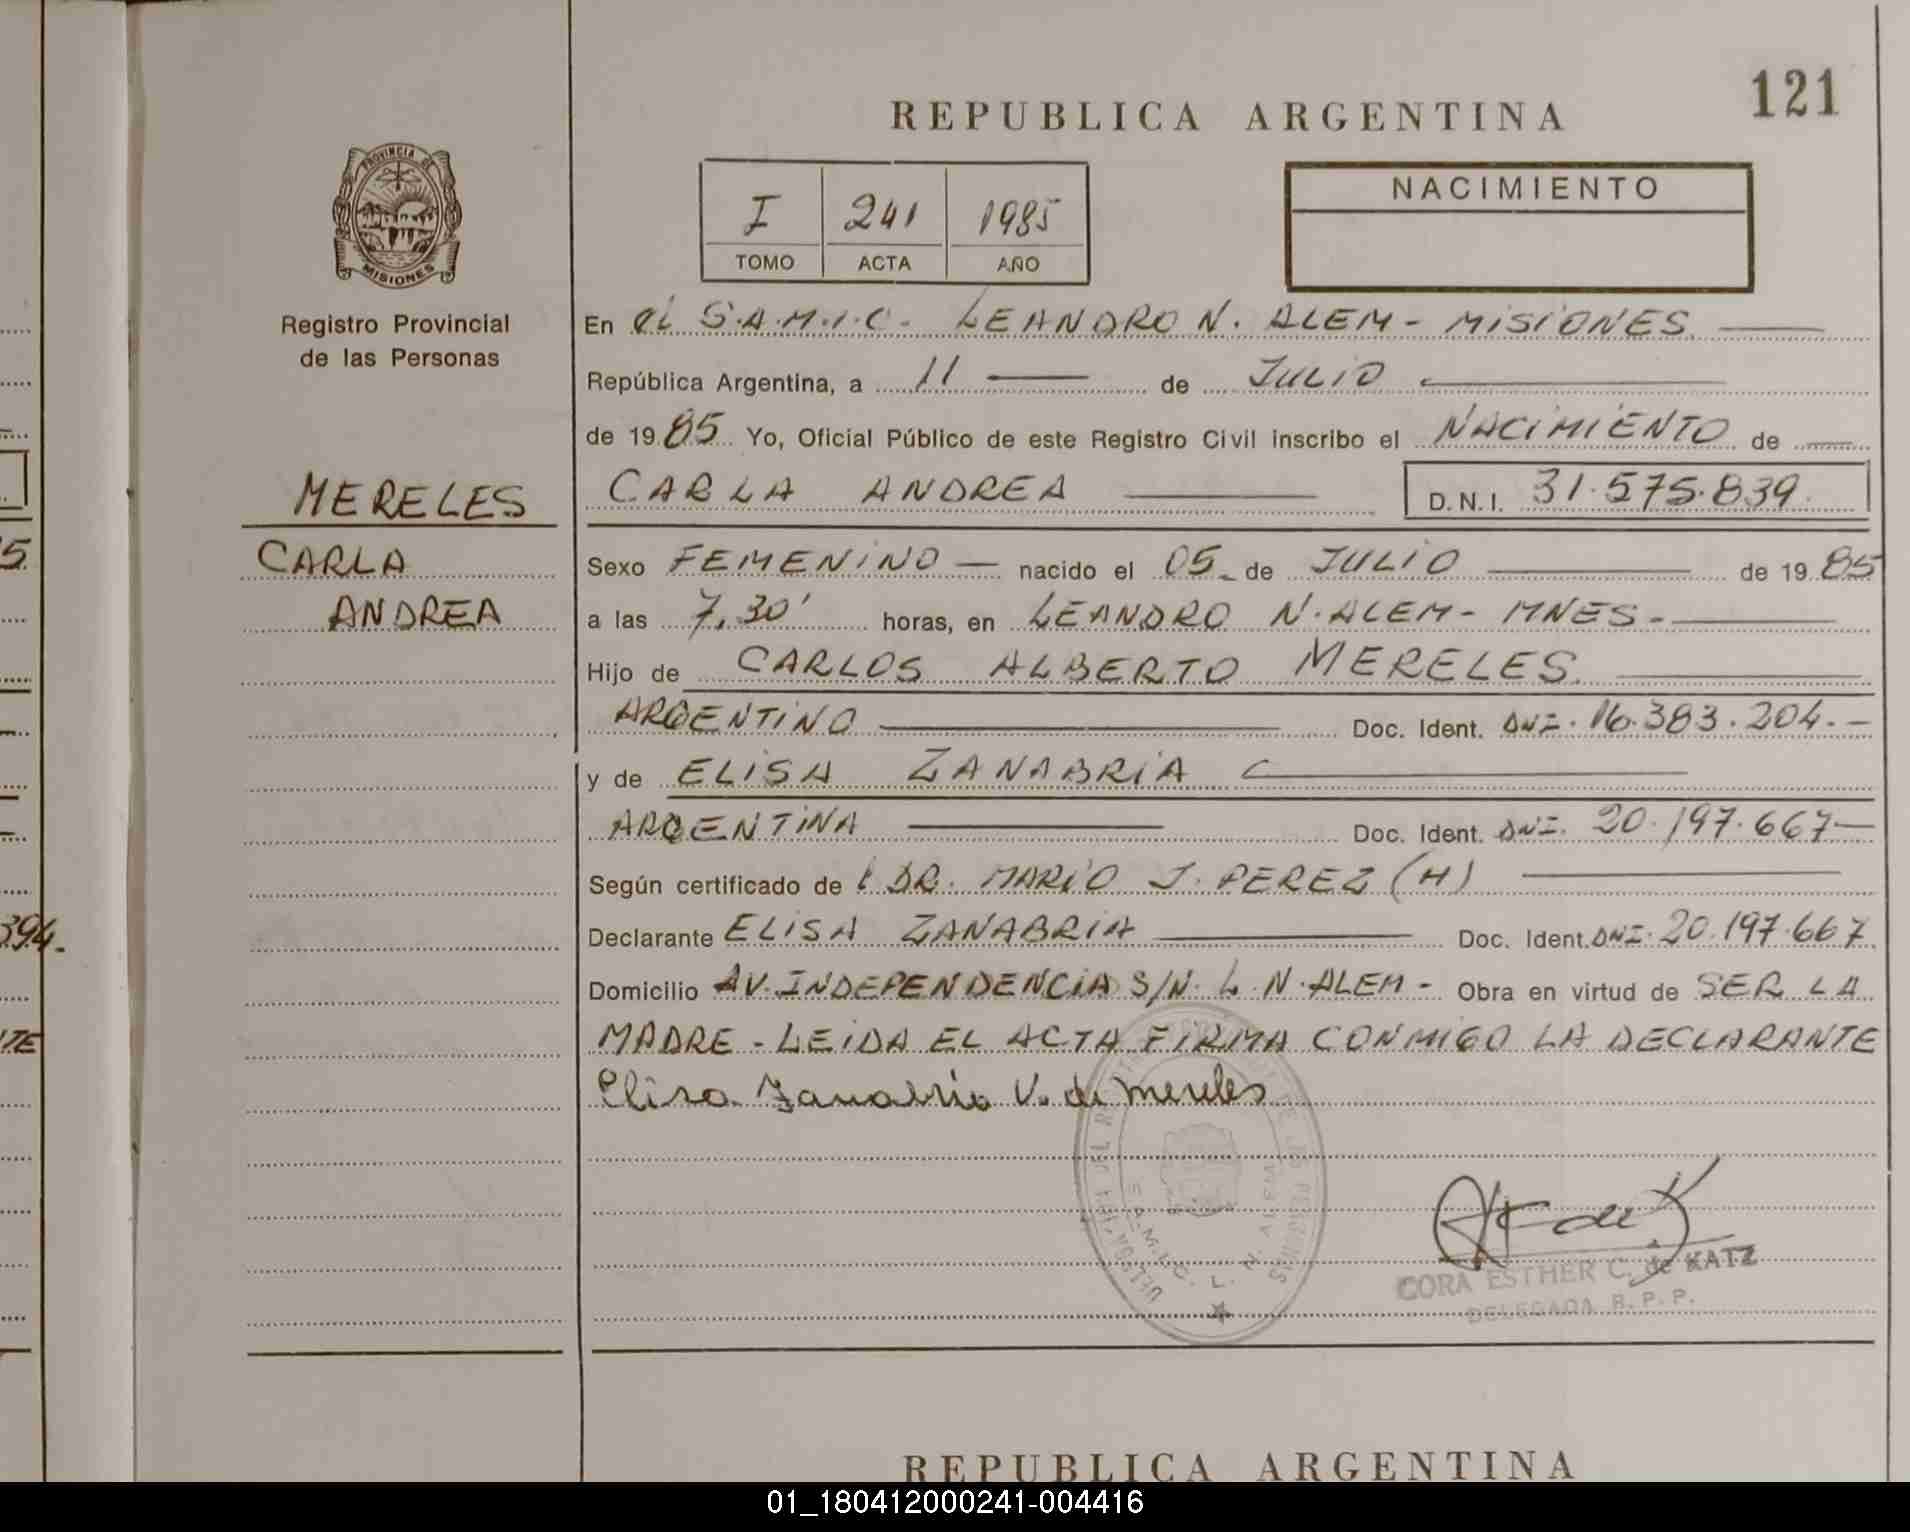 121
REPUBLICA ARGENTINA
PROVINCIA DE
MISIONES
Registro Provincial
de las Personas
I 241 1985
TOMO ACTA AÑO
NACIMIENTO
MERELES
CARLA
ANDREA
En el S.A.M.I.C. LEANDRO N. ALEM - MISIONES
República Argentina, a 11 de JULIO
de 19 85 Yo, Oficial Público de este Registro Civil inscribo el NACIMIENTO de
CARLA ANDREA D.N.I. 31.575.839
Sexo FEMENINO nacido el 05 de JULIO de 19 85
a las 7,30' horas, en LEANDRO N. ALEM - MNES -
Hijo de CARLOS ALBERTO MERELES
ARGENTINO Doc. Ident. DNI. 16.383.204.-
y de ELISA ZANABRIA
ARGENTINA Doc. Ident. DNI. 20.197.667-
Según certificado de l DR. MARIO J. PEREZ (H)
Declarante ELISA ZANABRIA Doc. Ident. DNI. 20.197.667
Domicilio AV. INDEPENDENCIA S/N. L. N. ALEM - Obra en virtud de SER LA
MADRE - LEIDA EL ACTA FIRMA CONMIGO LA DECLARANTE
Elisa Zanabria V. de Mereles
S.A.M.I.C. L. N. ALEM
CORA ESTHER C. de KATZ
DELEGADA R.P.P.
REPUBLICA ARGENTINA
394.
01_180412000241-004416